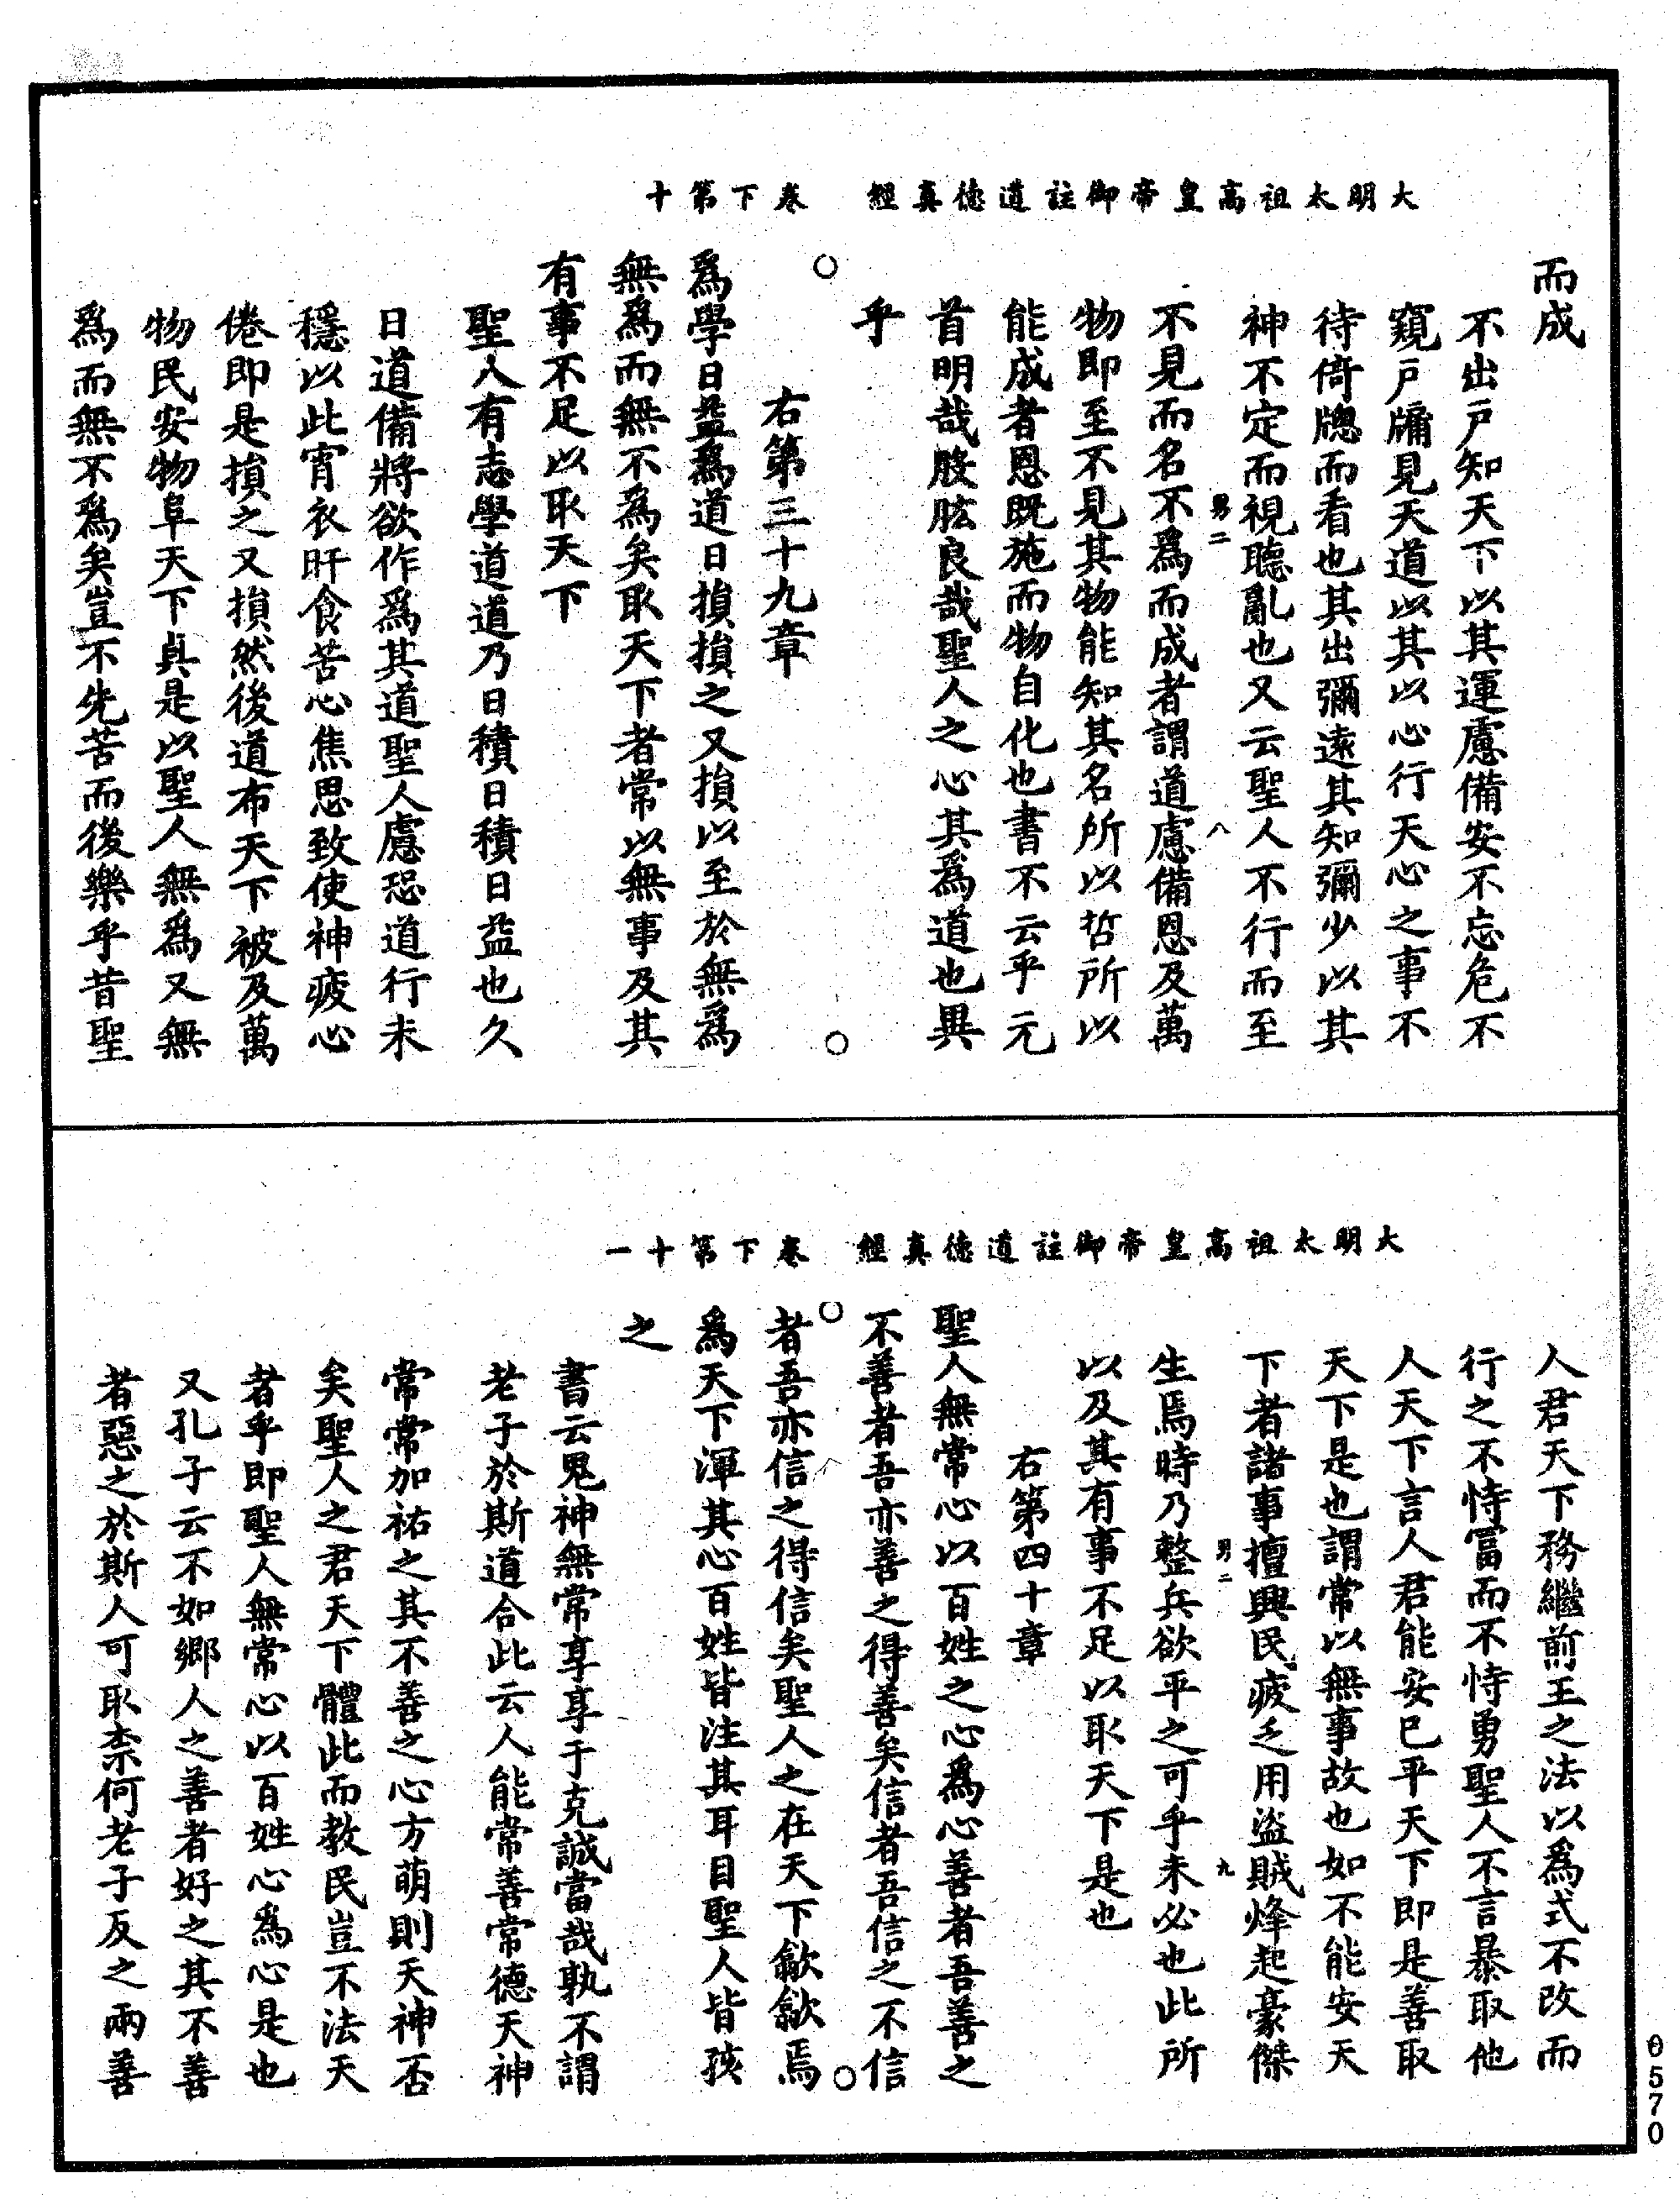 大明太祖高皇帝御註道德真經　卷下第十
而成
不出戶知天下以其運慮備安不忘危不
窺戶牖見天道以其以心行天心之事不
待倚牕而看也其出彌遠其知彌少以其
神不定而視聽亂也又云聖人不行而至
男二　八
不見而名不爲而成者謂道慮備恩及萬
物即至不見其物能知其名所以哲所以
能成者恩既施而物自化也書不云乎元
首明哉股肱良哉聖人之心其爲道也異
乎
右第三十九章
爲學日益爲道日損損之又損以至於無爲
無爲而無不爲矣取天下者常以無事及其
有事不足以取天下
聖人有志學道道乃日積日積日益也久
日道備將欲作爲其道聖人慮恐道行未
穩以此宵衣旰食苦心焦思致使神疲心
倦即是損之又損然後道布天下被及萬
物民安物阜天下貞是以聖人無爲又無
爲而無不爲矣豈不先苦而後樂乎昔聖
大明太祖高皇帝御註道德真經　卷下第十一
人君天下務繼前王之法以爲式不改而
行之不恃富而不恃勇聖人不言暴取他
人天下言人君能安已平天下即是善取
天下是也謂常以無事故也如不能安天
下者諸事擅興民疲乏用盜賊烽起豪傑
男二　九
生焉時乃整兵欲平之可乎未必也此所
以及其有事不足以取天下是也
右第四十章
聖人無常心以百姓之心爲心善者吾善之
不善者吾亦善之得善矣信者吾信之不信
者吾亦信之得信矣聖人之在天下歙歙焉
爲天下渾其心百姓皆注其耳目聖人皆孩
之
書云鬼神無常享享于克誠當哉孰不謂
老子於斯道合此云人能常善常德天神
常常加祐之其不善之心方萌則天神否
矣聖人之君天下體此而教民豈不法天
者乎即聖人無常心以百姓心爲心是也
又孔子云不如鄉人之善者好之其不善
者惡之於斯人可取柰何老子反之兩善
0570